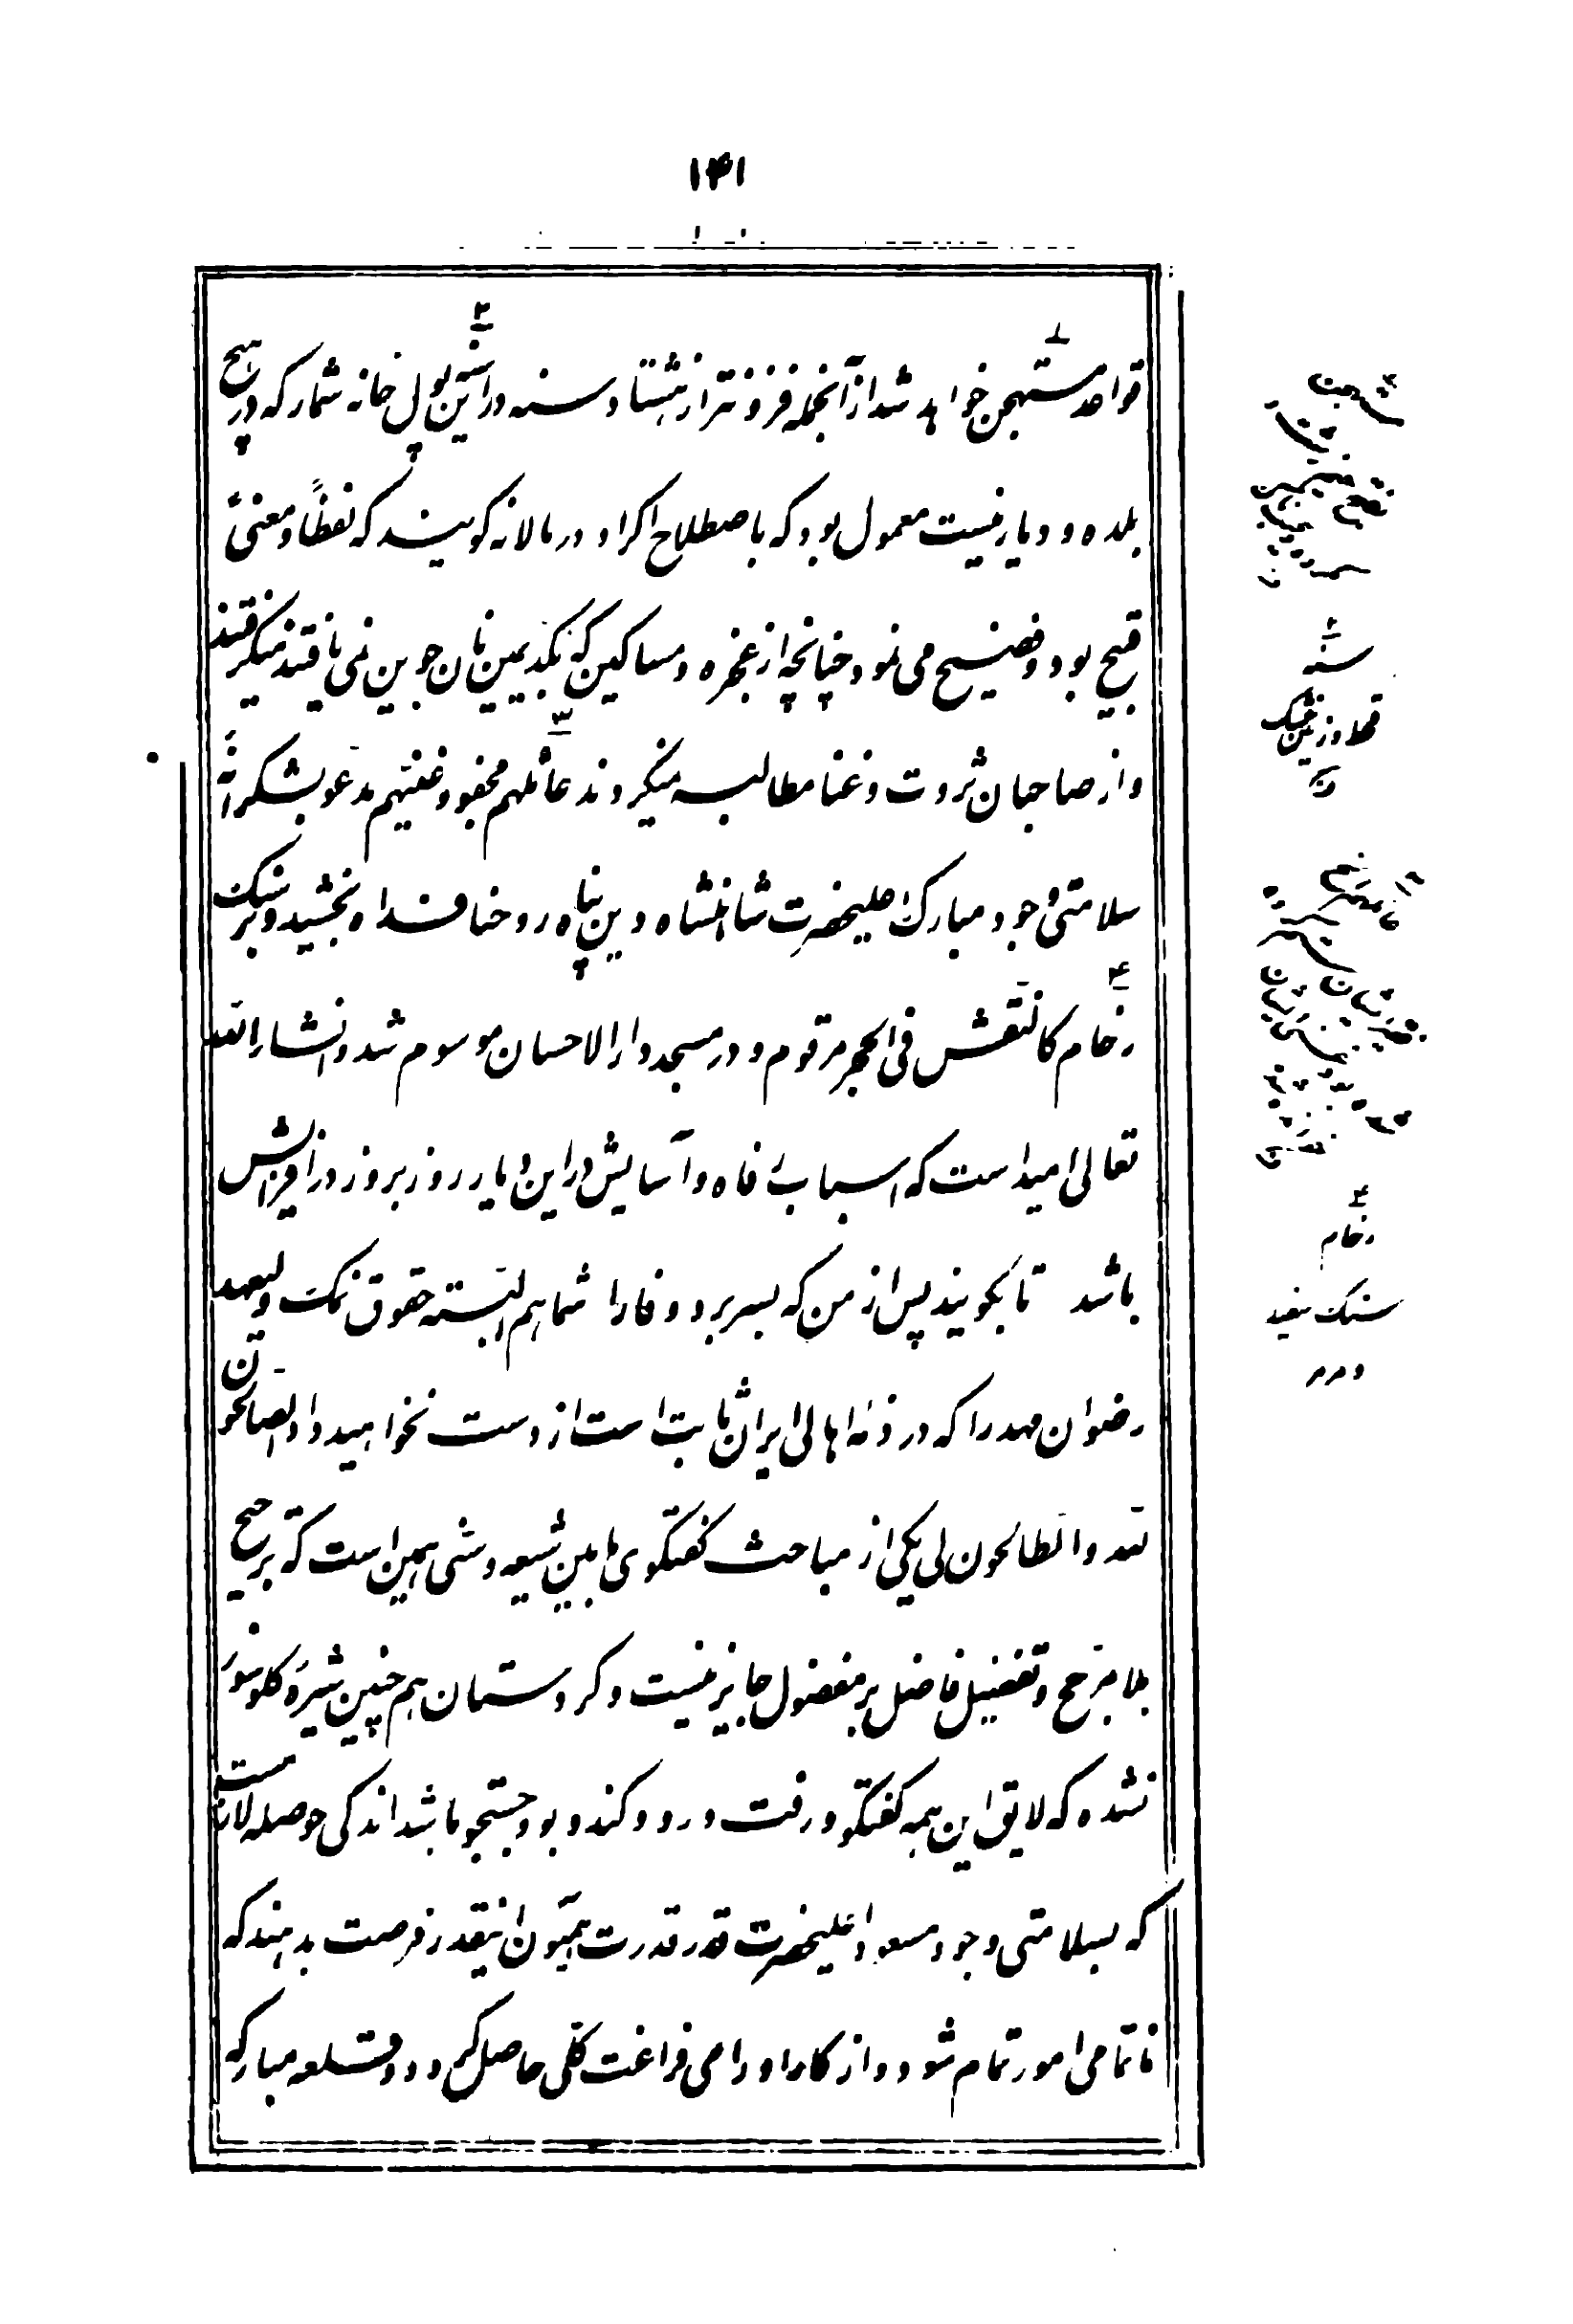 ۱۴۱
قواعد مستهجن خواهد شد از آنجمله فزونتر از هشتاد سنه در این پول خانه شمار که در هیچ
بلده و دیار نیست معمول بود که باصطلاح اکراد در مالانه کویند که لفظاً و معنیً
قبیح بود و فضیح می نمود چنانچه از عجزه و مساکین که بکد یمین نان جوین نمی یافتند میکرفتند
و از صاحبان ثروت و غنا مطالبه میکردند عائلهم مجفو و غنیهم مدعو بشکرانه
سلامتی وجود مبارک اعلیحضرت شاهنشاه دین پناه روحنا فداه بخشیده و بر سنک
رخام کالنقش فی الحجر مرقوم و در مسجد دار الاحسان موسوم شد و انشاء الله
تعالی امید است که اسباب رفاه و آسایش در این دیار روز بروز در افزایش
باشد تا بکویند پس از من که بسر برد وفا را شما هم البته حقوق نمک ولیعهد
رضوان مهد را که در ذمه اهالی ایران ثابت است از دست نخواهید داد الصالحون
لله والطالحون لی یکی از مباحث کفتکوی مابین شیعه و سنی همین است که ترجیح
بلا مرجح و تفضیل فاضل بر مفضول جایز نیست و کردستان هم چنین شیره کلوسوز
نشده که لایق این همه کفتکو و رفت و رو و کند و بود جستجو باشد اندکی حوصله لازمست
که بسلامتی وجود مسعود اعلیحضرت قدر قدرت همیون اینقدر فرصت بدهند که
ناتمامی امور تمام شود و از کارها و رامی فراغت کلی حاصل کردد و قلعه مبارکه
مستهجن
سنه
قحط و زمین خشک
رخام
سنک سفید
و مرمر